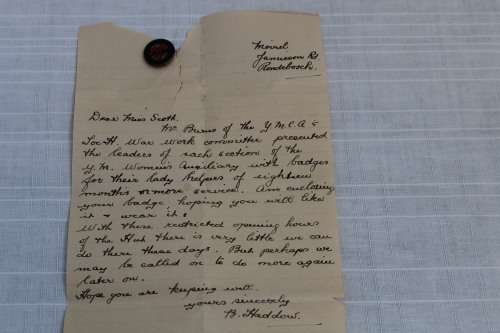 Jamieson Rd
Rondebosch.
Dear Miss Scott.
Mr Burns of the Y.M.C.A &
Toc H. War Work committee presented
the leaders of each section of the
Y.M. Women's Auxiliary with badges
for their lady helpers of eighteen
months or more service. Am enclosing
your badge, hoping you will like
it & wear it.
With these restricted opening hours
of the Hut there is very little we can
do there these days. But perhaps we
may be called on to do more again
later on.
Hope you are keeping well.
yours sincerely
B. Haddow.